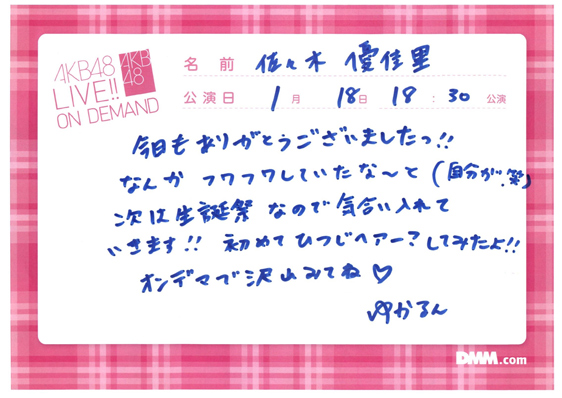 AKB48
LIVE!!
ON DEMAND
AKB
48
名前 佐々木 優佳里
公演日 1月 18日 18:30 公演
今日もありがとうございましたっ!!
なんか フワフワしていたな〜と (自分が.笑)
次は生誕祭 なので気合い入れて
いきます!! 初めてひつじヘアー?してみたよ!!
オンデマで沢山みてね♡
ゆかるん
DMM.com